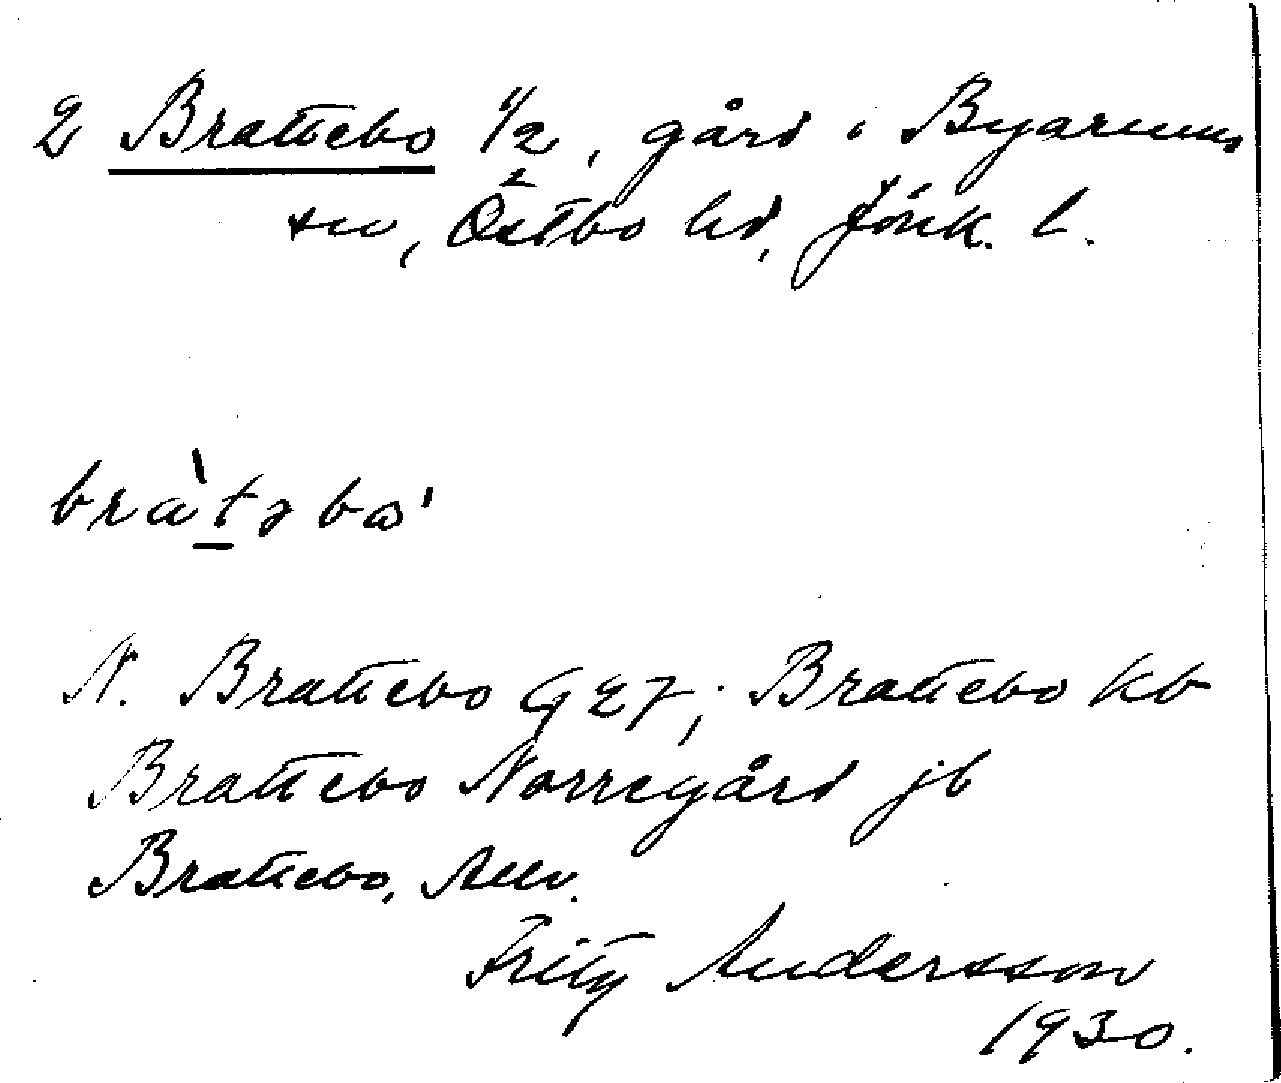 2 Brattebo 1/2, gård i Byarums
sn, Östbo hd, Jönk. l.
bràtəbω'
N. Brattebo G 27; Brattebo kb
Brattebo Norregård jb
Brattebo,
Fritz Andersson
1930.